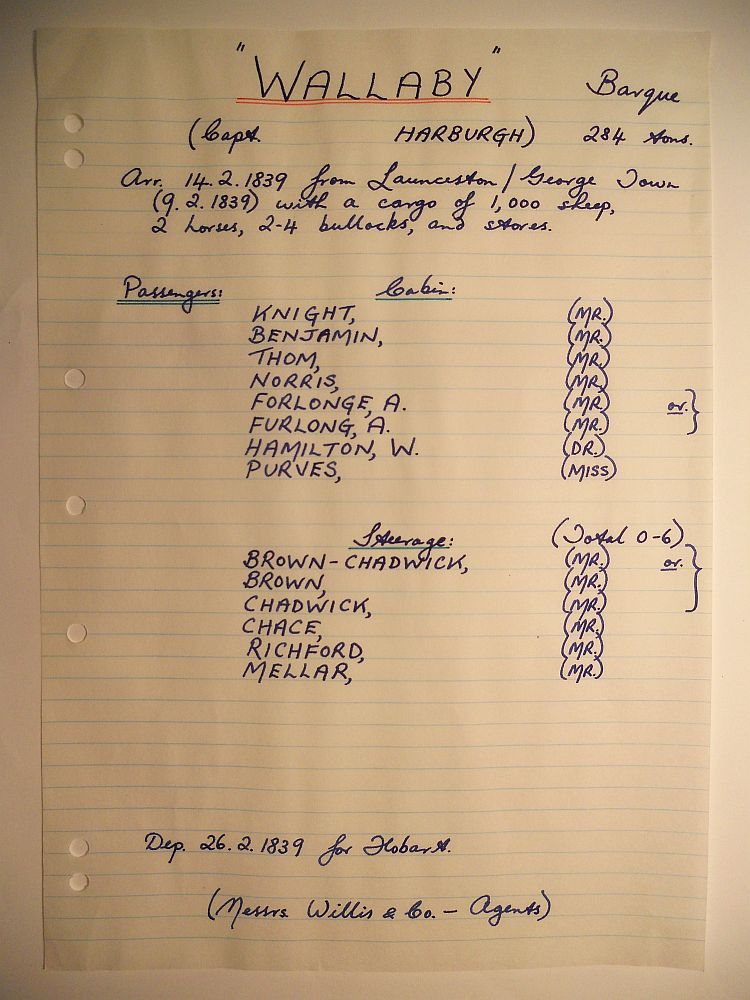 "WALLABY" Barque
(Capt. HARBURGH) 284 tons.
Arr. 14.2.1839 from Launceston/George Town
(9.2.1839) with a cargo of 1,000 sheep,
2 horses, 2-4 bullocks, and stores.
Passengers: Cabin:
KNIGHT, (MR.)
BENJAMIN, (MR.)
THOM, (MR.)
NORRIS, (MR.)
FORLONGE, A. (MR.) or. }
FURLONG, A. (MR.)
HAMILTON, W. (DR.)
PURVES, (MISS)
Steerage: (Total 0-6)
BROWN-CHADWICK, (MR.) or. }
BROWN, (MR.)
CHADWICK, (MR.)
CHACE, (MR.)
RICHFORD, (MR.)
MELLAR, (MR.)
Dep. 26.2.1839 for Hobart.
(Messrs. Willis & Co. - Agents)